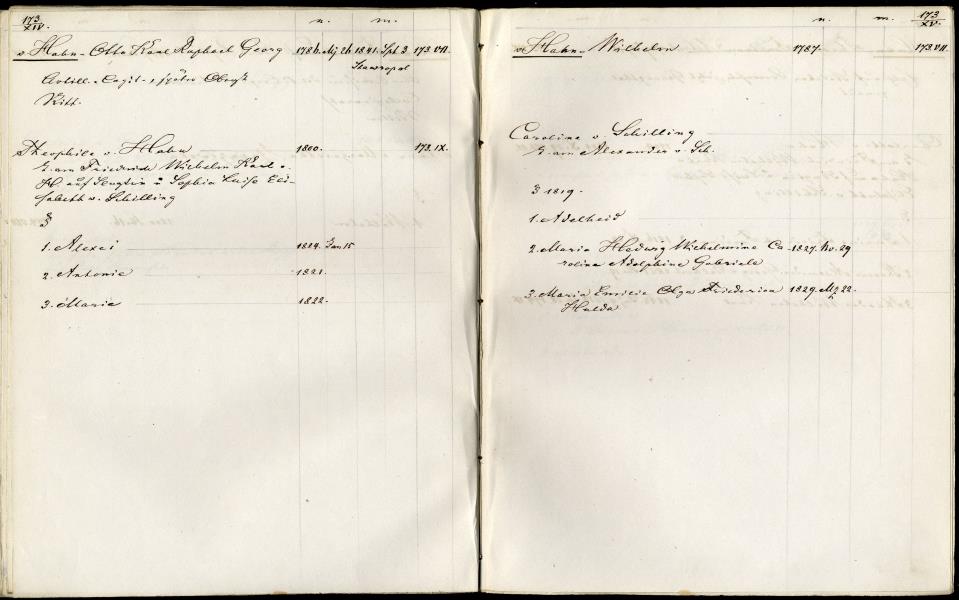 173
XIV.
n. m.
v. Hahn - Otto Karl Raphael Georg 1786. Mj 26. 1841. Spt 3. 173. VII.
Stawropol
Artill. - Capit. - später Obrist
Ritt.
Theophile v. Hahn 1800. 173. IX.
E. am Friedrich Wilhelm Karl v.
H. auf u Sophia Luise Eli-
sabeth v. Schilling
3
1. Alexei 1824. Jan 15
2. Antonie 1821.
3. Marie 1822.
173
XV.
n. m.
v. Hahn - Wilhelm 1787. 173. VII.
Caroline v. Schilling
E. am Alexander v. Sch.
3 1819.
1. Adelheid
2. Maria Hedwig Wilhelmine Ca- 1827. No. 29
roline Adolphine Gabriele
3. Maria Emilie Olga Friederica 1829. Mz 22.
Hulda